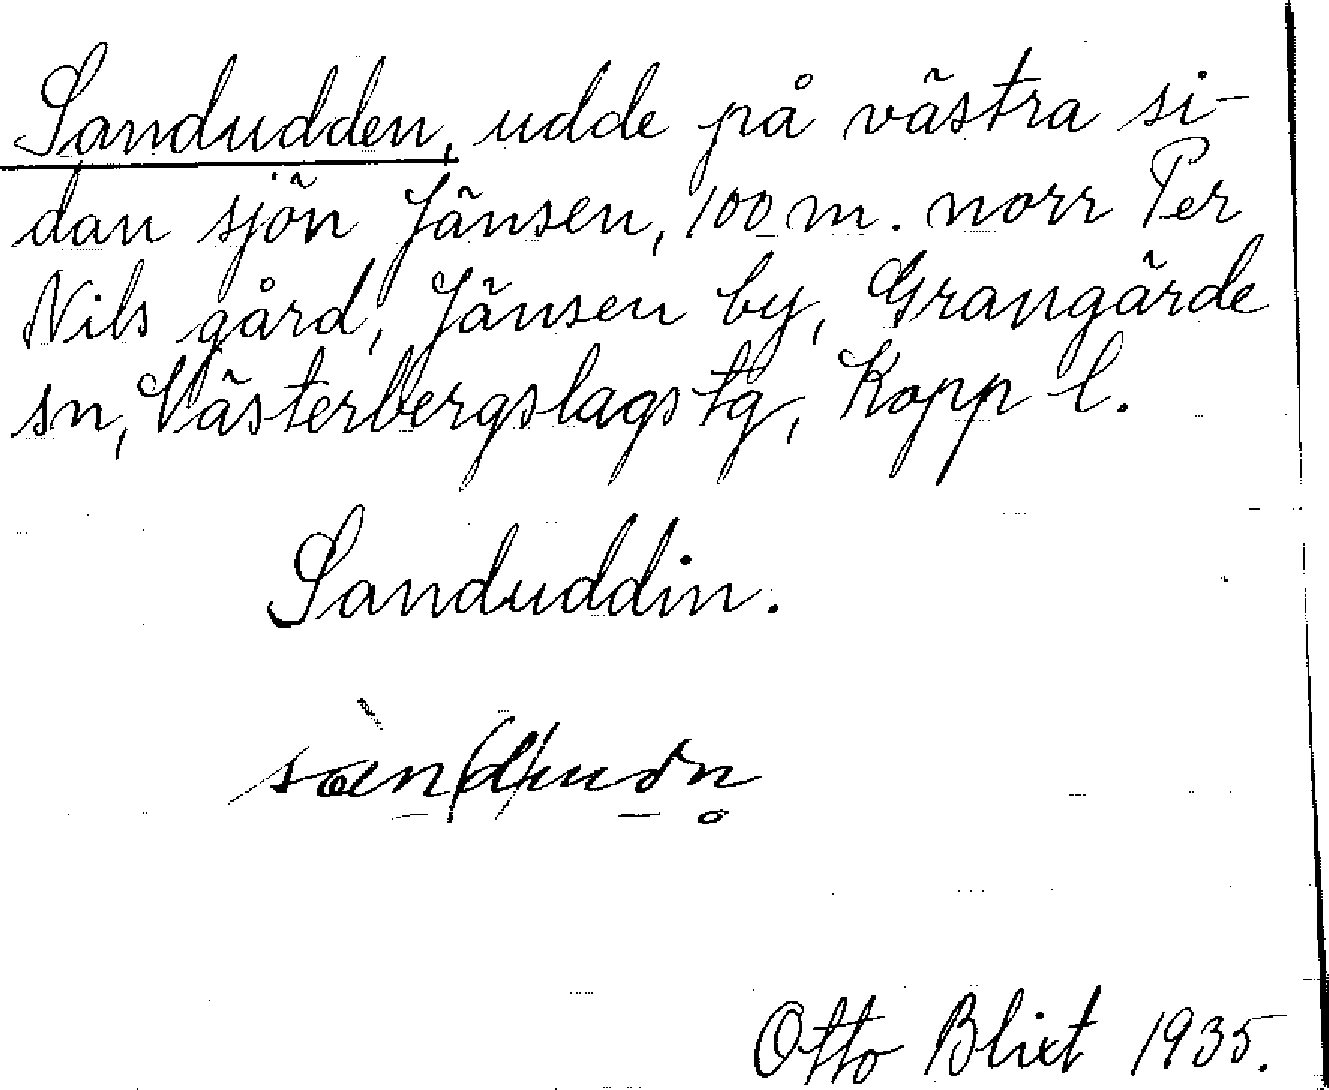 Sandudden, udde på västra si-
dan sjön Jänsen, 100 m. norr Per
Nils gård, Jänsen by, Grangärde
sn, Västerbergslags tg, Kopp l.
Sanduddin.
Otto Blixt 1935.